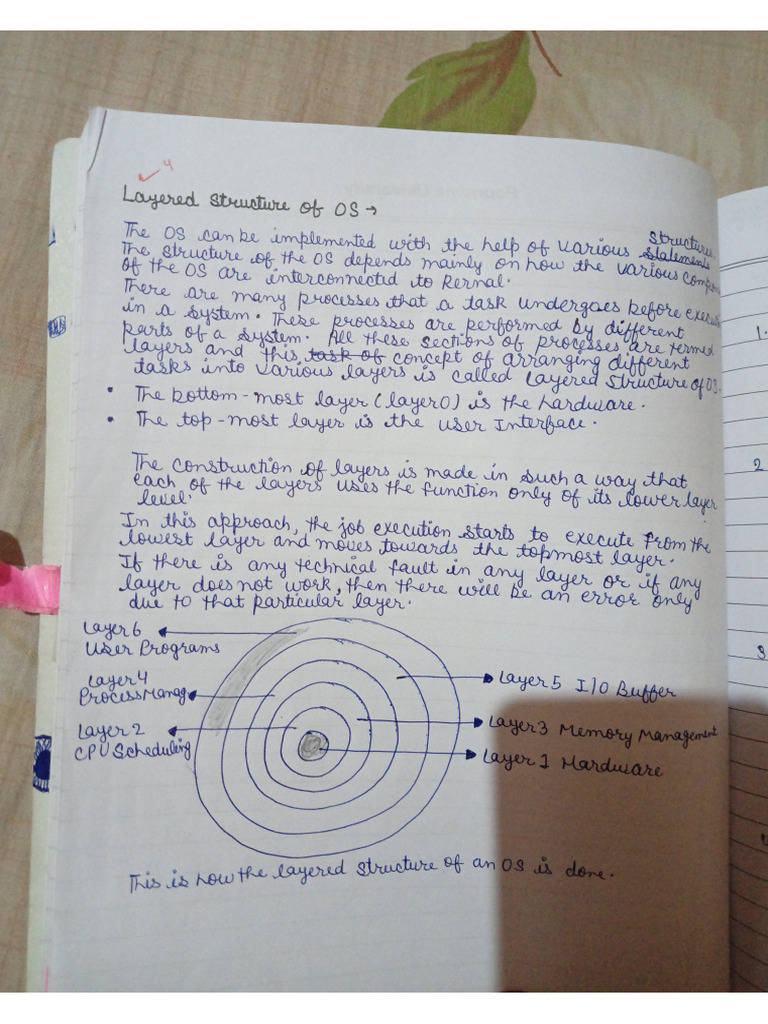 4
Layered Structure of OS →
The OS can be implemented with the help of various Structures
The structure of the OS depends mainly on how the various compon
of the OS are interconnected to Kernal.
There are many processes that a task undergoes before execu
in a system. These processes are performed by different
parts of a system. All these sections of processes are termed
layers and this task of concept of arranging different
tasks into various layers is called layered structure of OS.
• The bottom-most layer (layer0) is the hardware.
• The top-most layer is the user Interface.
The construction of layers is made in such a way that
each of the layers uses the function only of its lower layer
level.
In this approach, the job execution starts to execute from the
lowest layer and moves towards the topmost layer.
If there is any technical fault in any layer or if any
layer does not work, then there will be an error only
due to that particular layer.
Layer 6
User Programs
Layer 4
Process Manag
Layer 2
CPU Scheduling
Layer 5 I/O Buffer
Layer 3 Memory Management
Layer 1 Hardware
This is how the layered structure of an OS is done.
1.
2
3